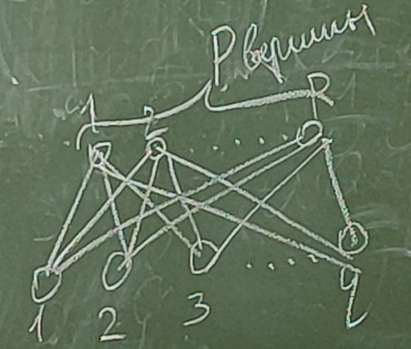 P вершины
1 2 ..... P
1 2 3 ..... q